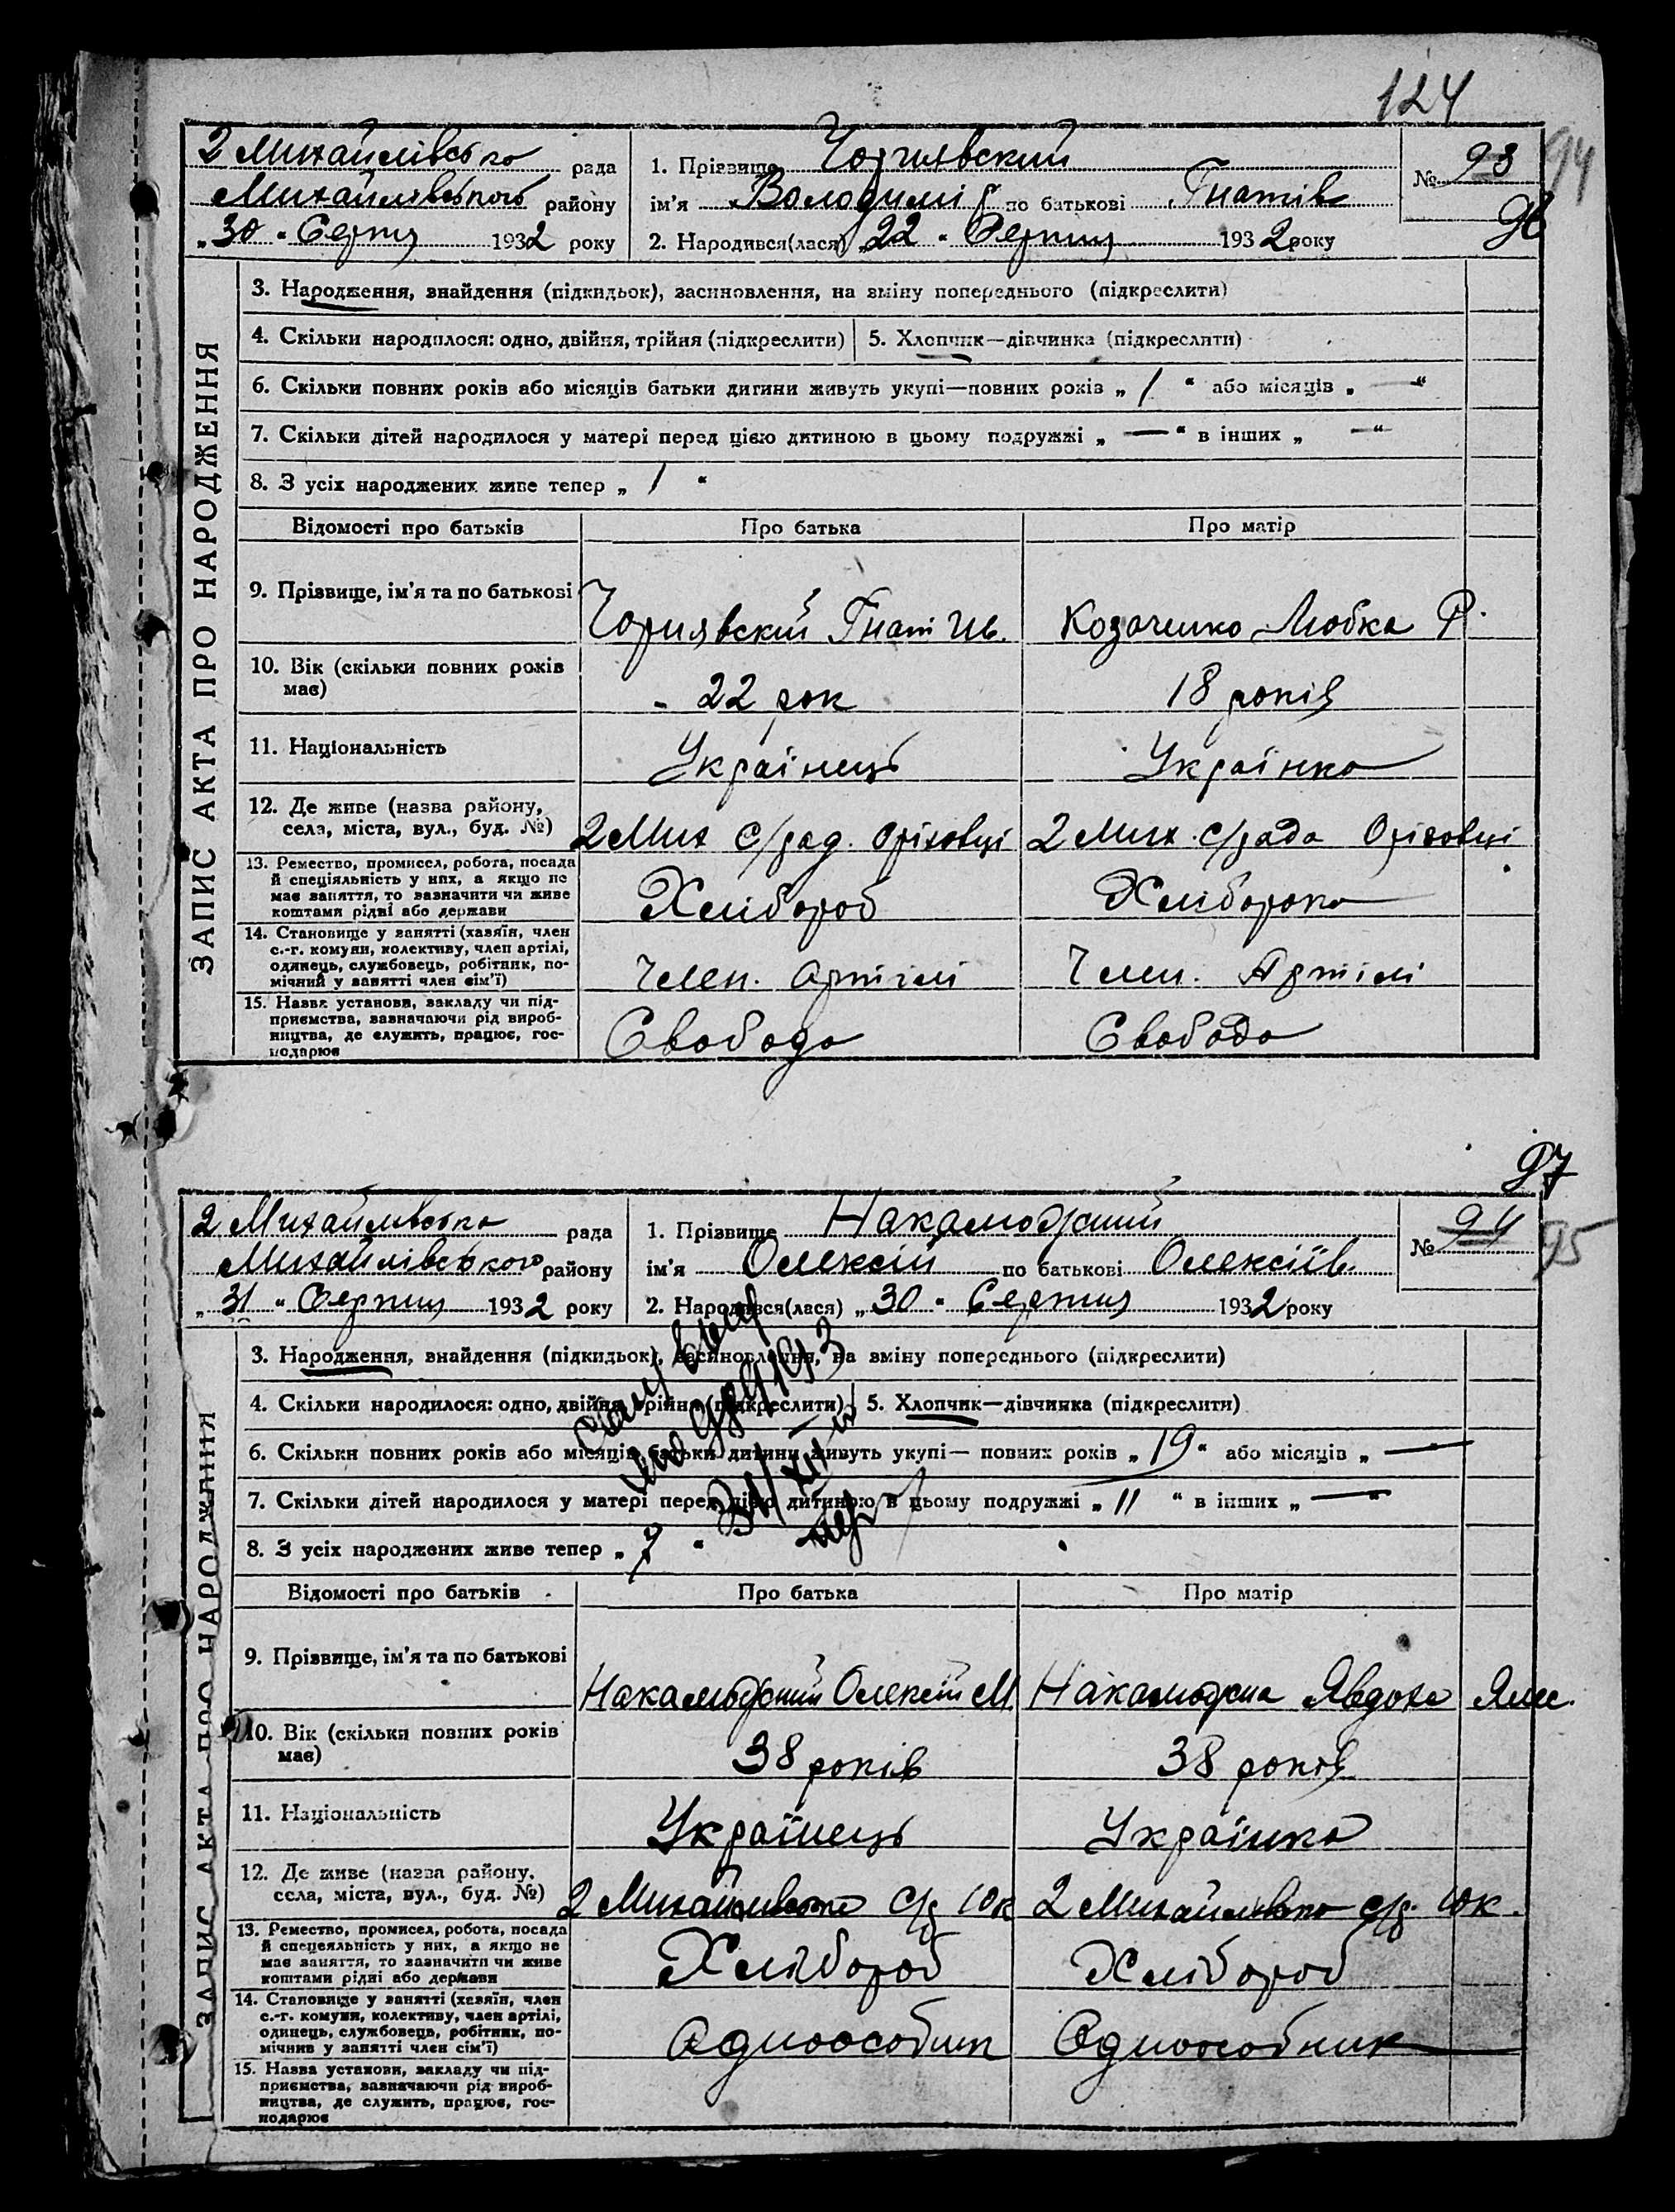 124
2 Михайлівська рада
Михайлівського району
„30“ Серпня 1932 року
1. Прізвище Чорнявский
ім'я Володимір по батькові Гнатів
2. Народився(лася) „22“ Серпня 1932 року
№ 93
94
96
ЗАПИС АКТА ПРО НАРОДЖЕННЯ
3. Народження, знайдення (підкидьок), засиновлення, на зміну попереднього (підкреслити)
4. Скільки народилося: одно, двійня, трійня (підкреслити) 5. Хлопчик—дівчинка (підкреслити)
6. Скільки повних років або місяців батьки дитини живуть укупі—повних років „ 1 “ або місяців „ — “
7. Скільки дітей народилося у матері перед цією дитиною в цьому подружжі „ — “ в інших „ — “
8. З усіх народжених живе тепер „ 1 “
Відомості про батьків Про батька Про матір
9. Прізвище, ім'я та по батькові Чорнявский Гнат Ив. Козаченко Любка Р.
10. Вік (скільки повних років має) 22 рок 18 років
11. Національність Українець Українка
12. Де живе (назва району, села, міста, вул., буд. №) 2 Мих с/рад. Оріховці 2 Мих. с/рада Оріховці
13. Ремество, промисел, робота, посада
й спеціяльність у них, а якщо не
має заняття, то зазначити чи живе
коштами рідні або держави Хлібороб Хліборобка
14. Становище у занятті (хазяїн, член
с.-г. комуни, колективу, член артілі,
одинець, службовець, робітник, по-
мічний у занятті член сім'ї) Член. Артілі Член. Артілі
15. Назва установи, закладу чи під-
приємства, зазначаючи рід вироб-
ництва, де служить, працює, гос-
подарює Свобода Свобода
97
2 Михайлівська рада
Михайлівського району
„31“ Серпня 1932 року
1. Прізвище
ім'я Олексій по батькові Олексіїв.
2. Народився(лася) „30“ Серпня 1932 року
№ 94
95
ЗАПИС АКТА ПРО НАРОДЖЕННЯ
3. Народження, знайдення (підкидьок), засиновлення, на зміну попереднього (підкреслити)
4. Скільки народилося: одно, двійня, трійня (підкреслити) 5. Хлопчик—дівчинка (підкреслити)
6. Скільки повних років або місяців батьки дитини живуть укупі— повних років „ 19 “ або місяців „ — “
7. Скільки дітей народилося у матері перед цією дитиною в цьому подружжі „ 11 “ в інших „ — “
8. З усіх народжених живе тепер „ “
Відомості про батьків Про батька Про матір
9. Прізвище, ім'я та по батькові Олексій М Явдоха Яким.
10. Вік (скільки повних років має) 38 років 38 років
11. Національність Українець Українка
12. Де живе (назва району, села, міста, вул., буд. №) 2 Михайлівська с/р 2 Михайлівка с/р.
13. Ремество, промисел, робота, посада
й спецеяльність у них, а якщо не
має заняття, то зазначити чи живе
коштами рідні або держави Хлібороб Хлібороб
14. Становище у занятті (хазяїн, член
с.-г. комуни, колективу, член артілі,
одинець, службовець, робітник, по-
мічний у занятті член сім'ї) Одноосібник Одноособник
15. Назва установи, закладу чи під-
приємства, зазначаючи рід вироб-
ництва, де служить, працює, гос-
подарює